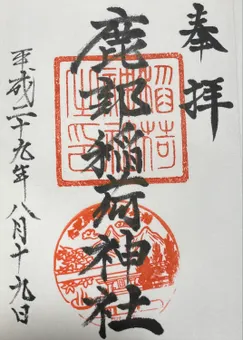 奉拝
鹿部稲荷神社
平成二十九年八月十九日
稲荷
之印